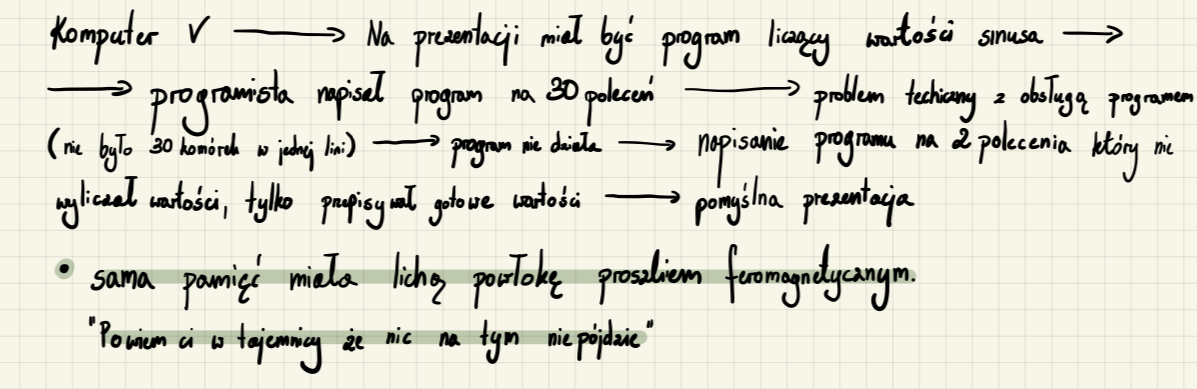 Komputer V ⟶ Na prezentacji miał być program liczący wartości sinusa ⟶
⟶ programista napisał program na 30 poleceń ⟶ problem techiczny z obsługą programem
(nie było 30 komórek w jednej lini) ⟶ program nie działa ⟶ napisanie programu na 2 polecenia który nie
wyliczał wartości, tylko przepisywał gotowe wartości ⟶ pomyślna prezentacja
• sama pamięć miała lichą powłokę proszkiem feromagnetycznym.
"Powiem ci w tajemnicy że nic na tym nie pójdzie"